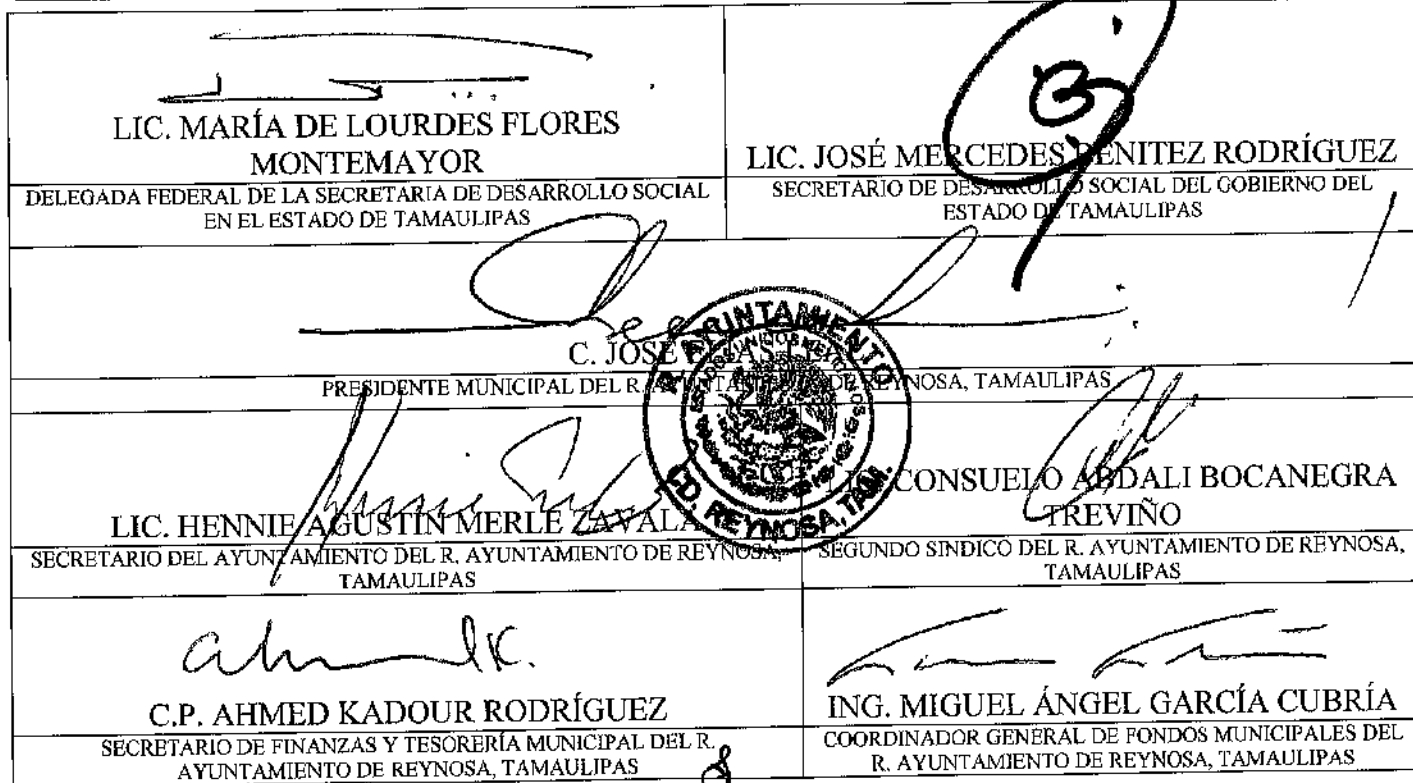 LIC. MARÍA DE LOURDES FLORES
MONTEMAYOR
DELEGADA FEDERAL DE LA SECRETARIA DE DESARROLLO SOCIAL
EN EL ESTADO DE TAMAULIPAS
LIC. JOSÉ MERCEDES BENITEZ RODRÍGUEZ
SECRETARIO DE DESARROLLO SOCIAL DEL GOBIERNO DEL
ESTADO DE TAMAULIPAS
C. JOSÉ
PRESIDENTE MUNICIPAL DEL R. AYUNTAMIENTO DE REYNOSA, TAMAULIPAS
R. AYUNTAMIENTO
ESTADOS UNIDOS MEXICANOS
CD. REYNOSA, TAM.
LIC. HENNIE AGUSTÍN MERLE ZAVALA
SECRETARIO DEL AYUNTAMIENTO DEL R. AYUNTAMIENTO DE REYNOSA,
TAMAULIPAS
CONSUELO ABDALI BOCANEGRA
TREVIÑO
SEGUNDO SINDICO DEL R. AYUNTAMIENTO DE REYNOSA,
TAMAULIPAS
C.P. AHMED KADOUR RODRÍGUEZ
SECRETARIO DE FINANZAS Y TESORERÍA MUNICIPAL DEL R.
AYUNTAMIENTO DE REYNOSA, TAMAULIPAS
ING. MIGUEL ÁNGEL GARCÍA CUBRÍA
COORDINADOR GENERAL DE FONDOS MUNICIPALES DEL
R. AYUNTAMIENTO DE REYNOSA, TAMAULIPAS